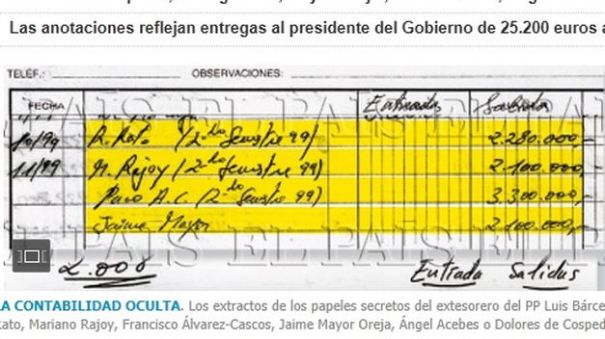 Las anotaciones reflejan entregas al presidente del Gobierno de 25.200 euros a
TELÉF.: OBSERVACIONES:
FECHA Entrada Salida
10/99 R. Rato (2do Semestre 99) 2.280.000,-
11/99 M. Rajoy (2do Semestre 99) 2.100.000,-
Paco A.C. (2do Semestre 99) 3.300.000,-
Jaime Mayor 2.100.000,-
EL PAÍS EL PAÍS
2.000 Entrada Salidas
LA CONTABILIDAD OCULTA. Los extractos de los papeles secretos del extesorero del PP Luis Bárce
Rato, Mariano Rajoy, Francisco Álvarez-Cascos, Jaime Mayor Oreja, Ángel Acebes o Dolores de Cosped